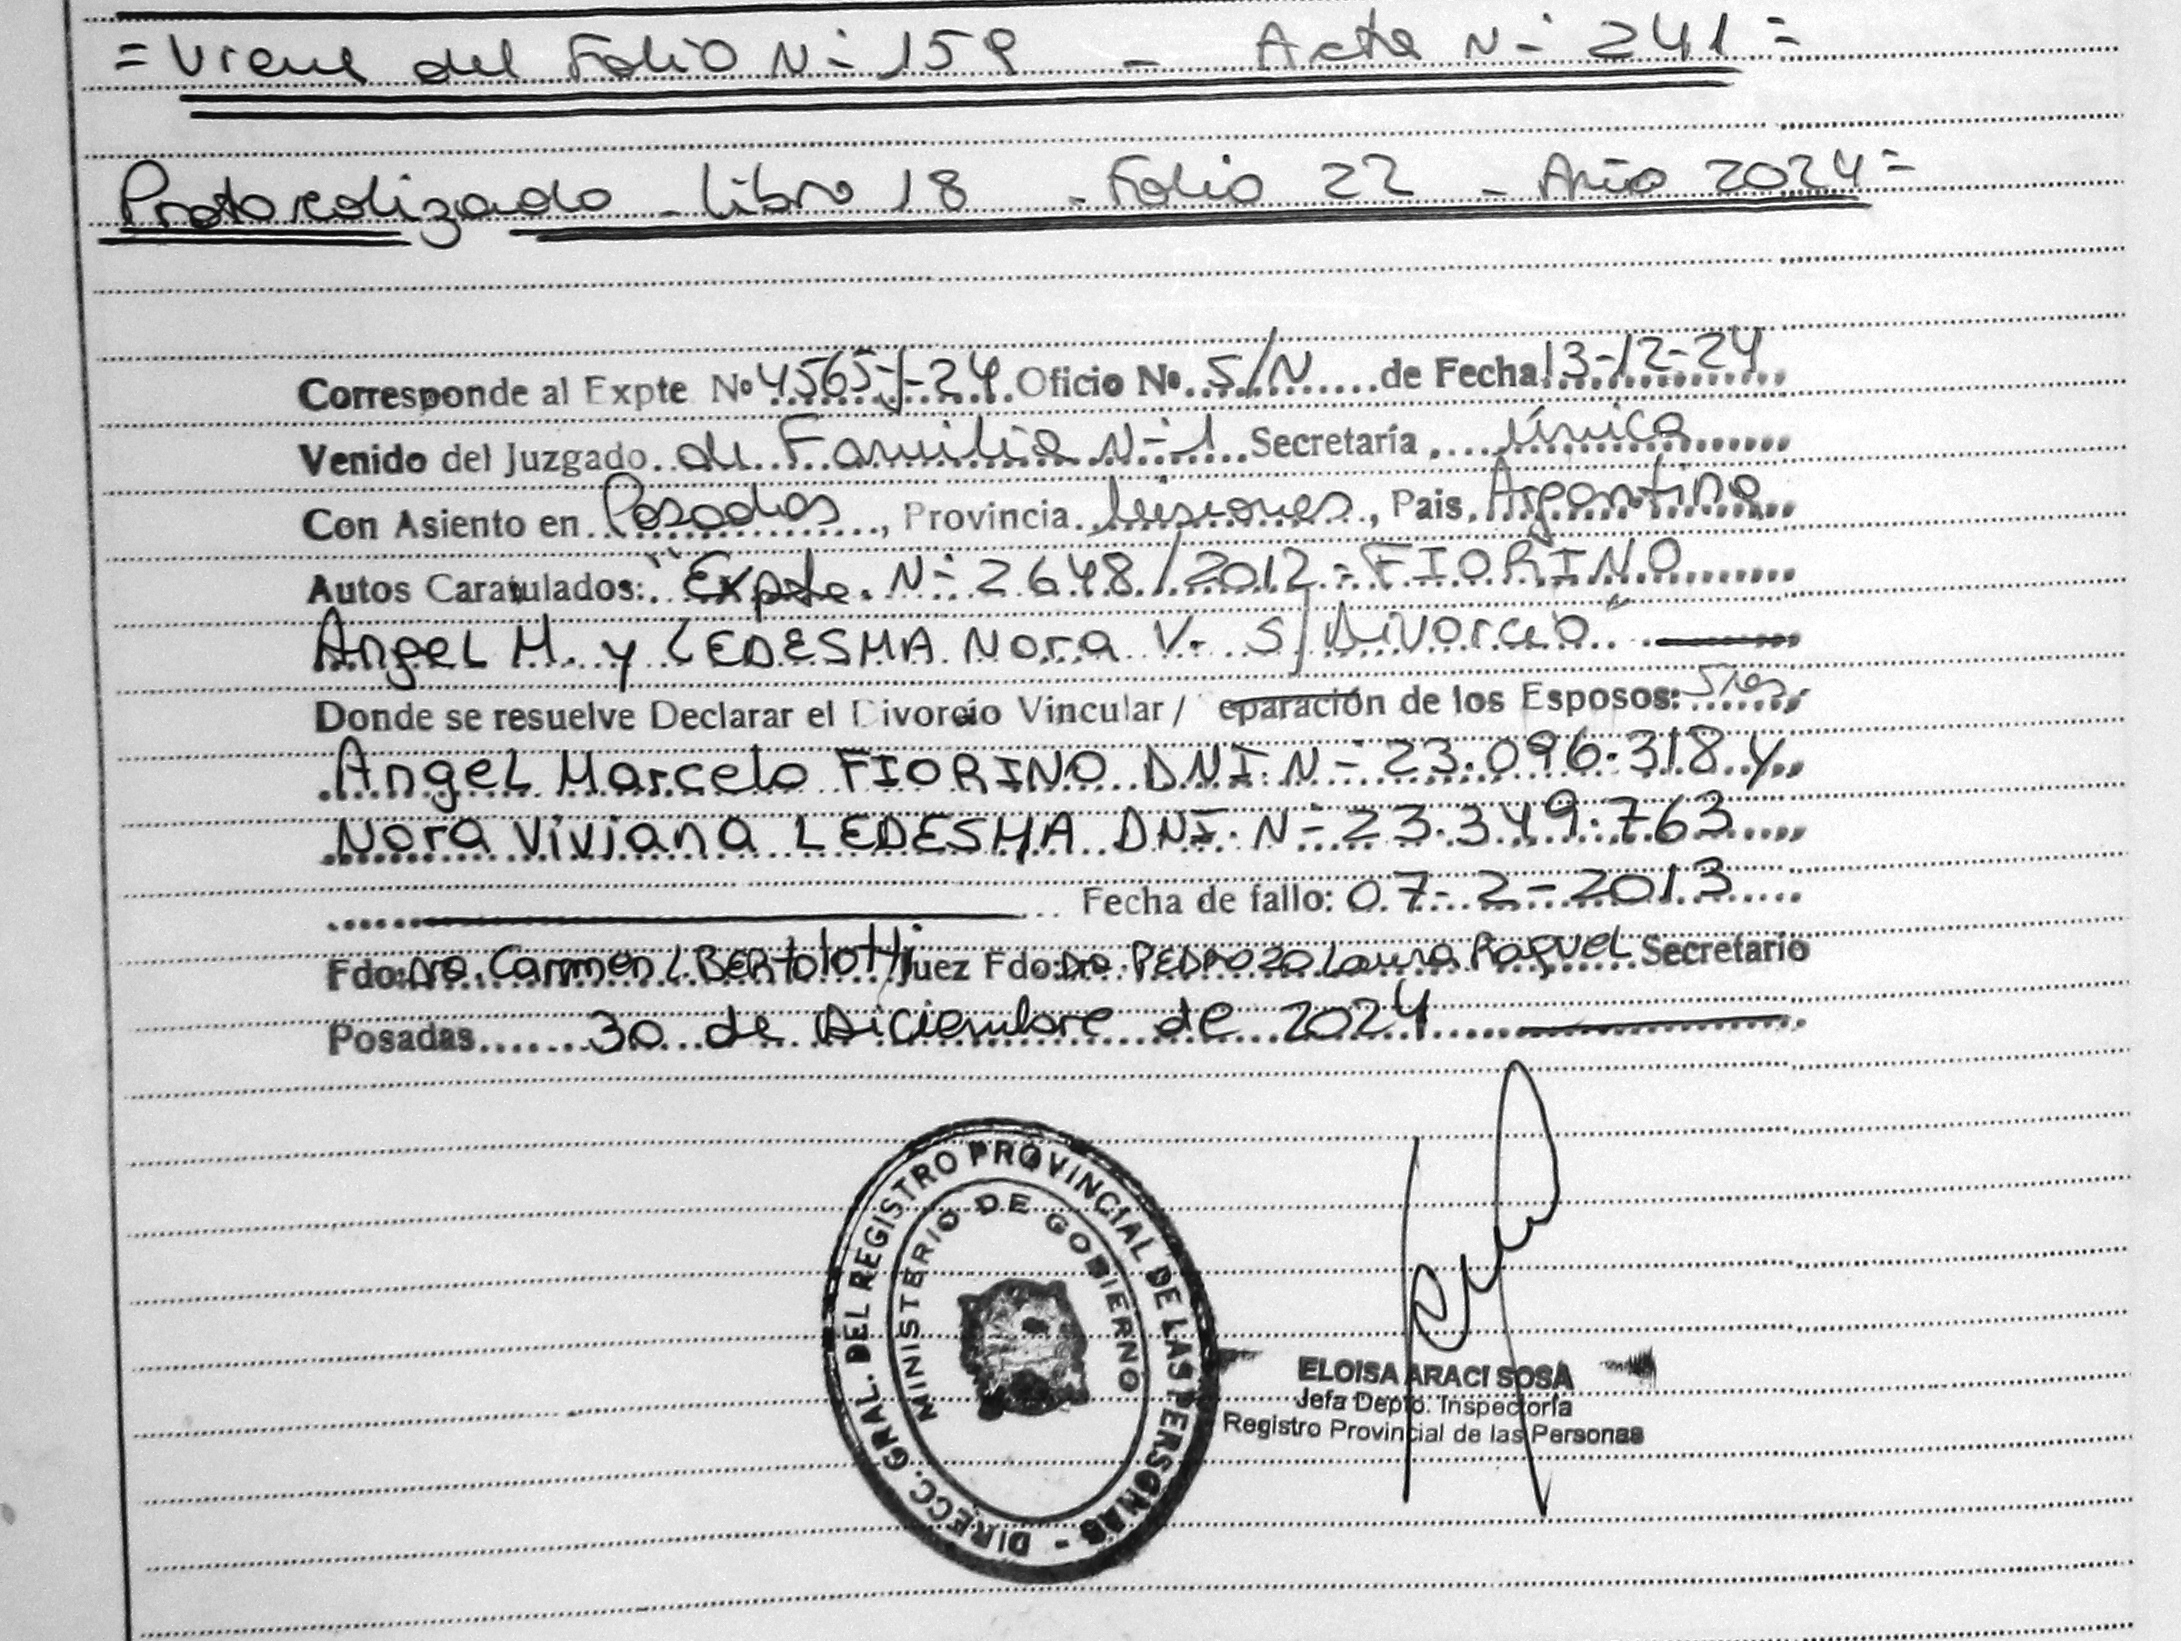 = Viene del Folio N- 159 - Acta N- 241 =
Protocolizado - Libro 18 - Folio 22 - Año 2024 =
Corresponde al Expte Nº 4565-J-24 Oficio Nº S/N de Fecha 13-12-24
Venido del Juzgado de Familia N-1 Secretaría única
Con Asiento en Posadas, Provincia Misiones, Pais Argentina
Autos Caratulados: "Expte. N- 2648/2012- FIORINO
Angel M. y LEDESMA Nora V. S/Divorcio"
Donde se resuelve Declarar el Divorcio Vincular / eparación de los Esposos: Sres.
Angel Marcelo FIORINO DNI. N- 23.096.318 y
Nora Viviana LEDESMA DNI. N- 23.349.763
Fecha de fallo: 07-2-2013
Fdo: Dra. Carmen L BERTolotti Juez Fdo: Dra PEDROZO Laura Raquel Secretario
Posadas 30 de Diciembre de 2024
DIRECC. GRAL. DEL REGISTRO PROVINCIAL DE LAS PERSONAS -
MINISTERIO DE GOBIERNO
ELOISA ARACI SOSA
Jefa Depto. Inspectoría
Registro Provincial de las Personas